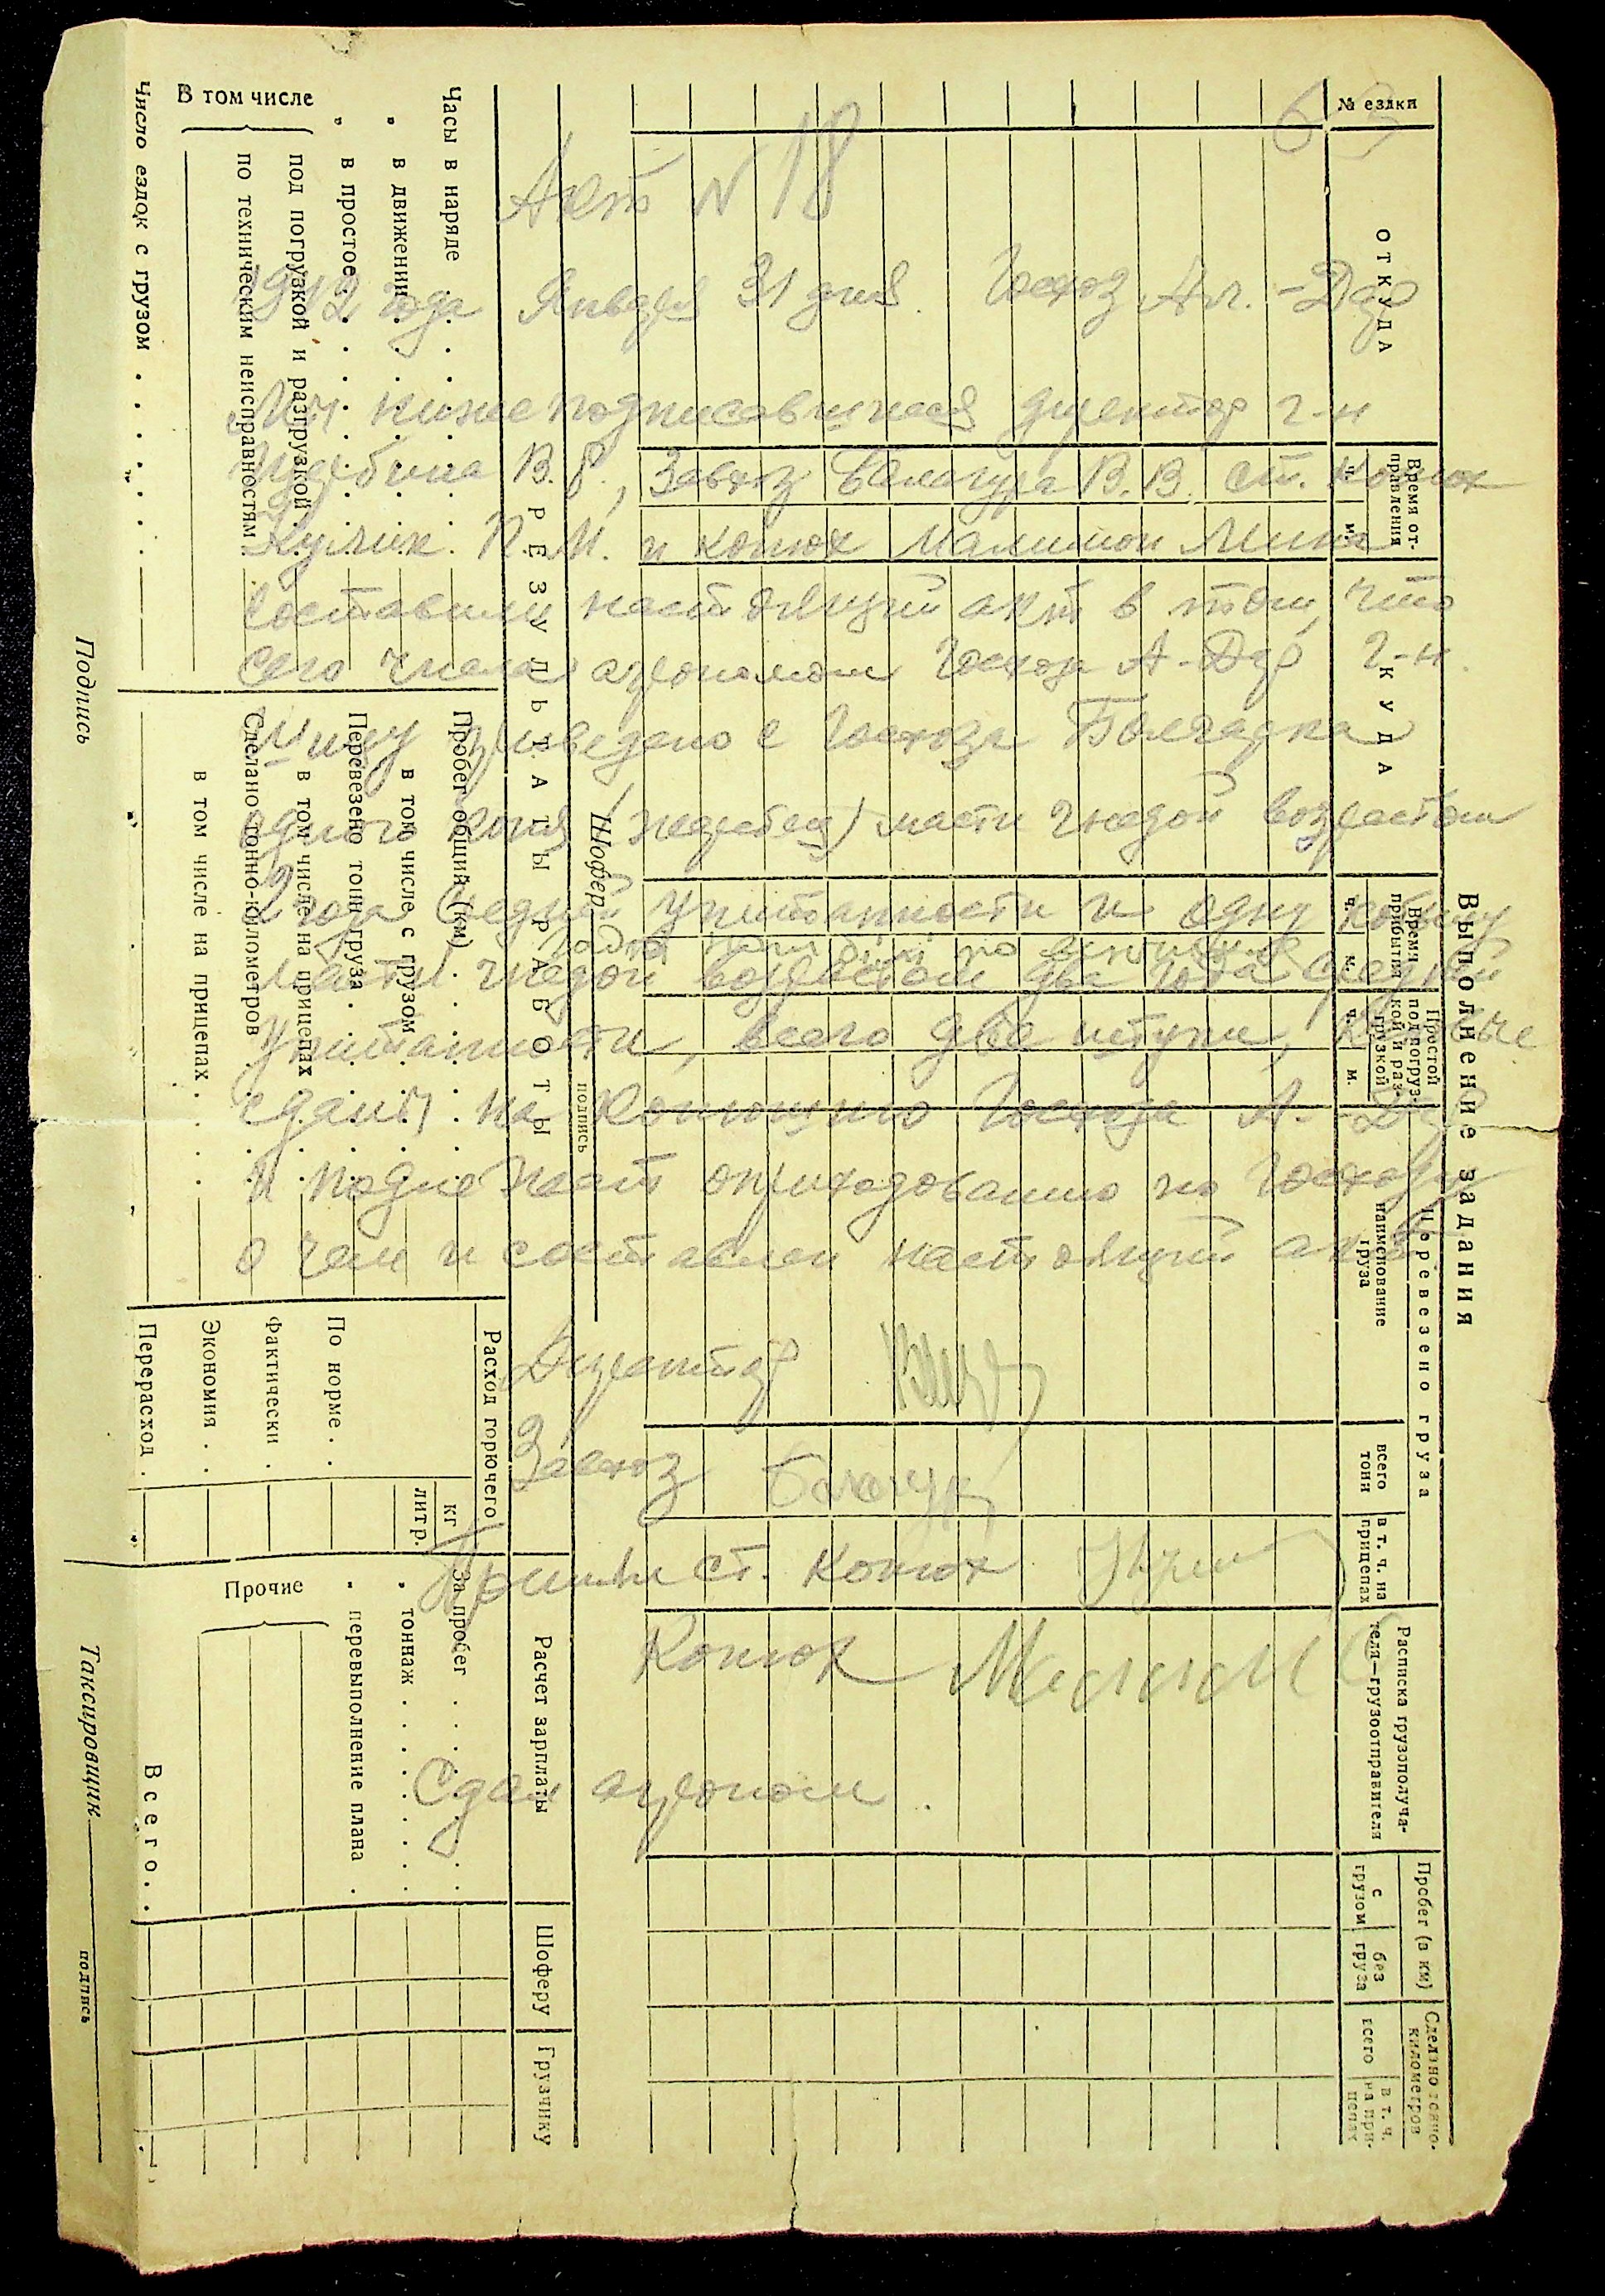 63
Акт N 18
1942 года Января 31 дня. Госхоз Ал.-Дар
Мы ниже подписавшиеся директор г-н
Щербина В. Г., Завхоз Балагура В. В. ст. конюх
Кулик П. И. и конюх Малимон Мина
Составили настоящий акт в том, что
сего числа агрономом Госхоза А-Дар г-н.
приведено с Госхоза Болгарка
одного коня (жеребец) масти гнедой возрастом
2 года средней упитанности и одну кобылу
масти гнедой возрастом два года средней
Упитанности, всего две штуки, которые
сданы на Конюшню Госхоза А.-Дар
и подлежат оприходованию по Госхозу
о чем и составлен настоящий акт
Директор
Завхоз Балагура
Приняли ст. Конюх Кулик
Конюх Малимон
Сдал агроном.
Выполнение задания
№ ездки
ОТКУДА
Время отправления
ч. м.
КУДА
Время прибытия
ч. м.
Простой под погрузкой и разгрузкой
ч. м.
Перевезено груза
наименование груза
всего тонн
в т. ч. на прицепах
Расписка грузополучателя—грузоотправителя
Пробег (в км)
с грузом
без груза
Сделано тонно-километров
всего
в т. ч. на прицепах
Шофер
подпись
РЕЗУЛЬТАТЫ РАБОТЫ
Часы в наряде
" в движении
" в простое
В том числе
под погрузкой и разгрузкой
по техническим неисправностям
Число ездок с грузом
Пробег общий (км)
в том числе с грузом
Перевезено тонн груза
в том числе на прицепах
Сделано тонно-километров
в том числе на прицепах
Расход горючего
кг
литр.
По норме
Фактически
Экономия
Перерасход
Расчет зарплаты
Шоферу
Грузчику
За пробег
" тоннаж
" перевыполнение плана
Прочие
Всего
Подпись
Таксировщик
подпись